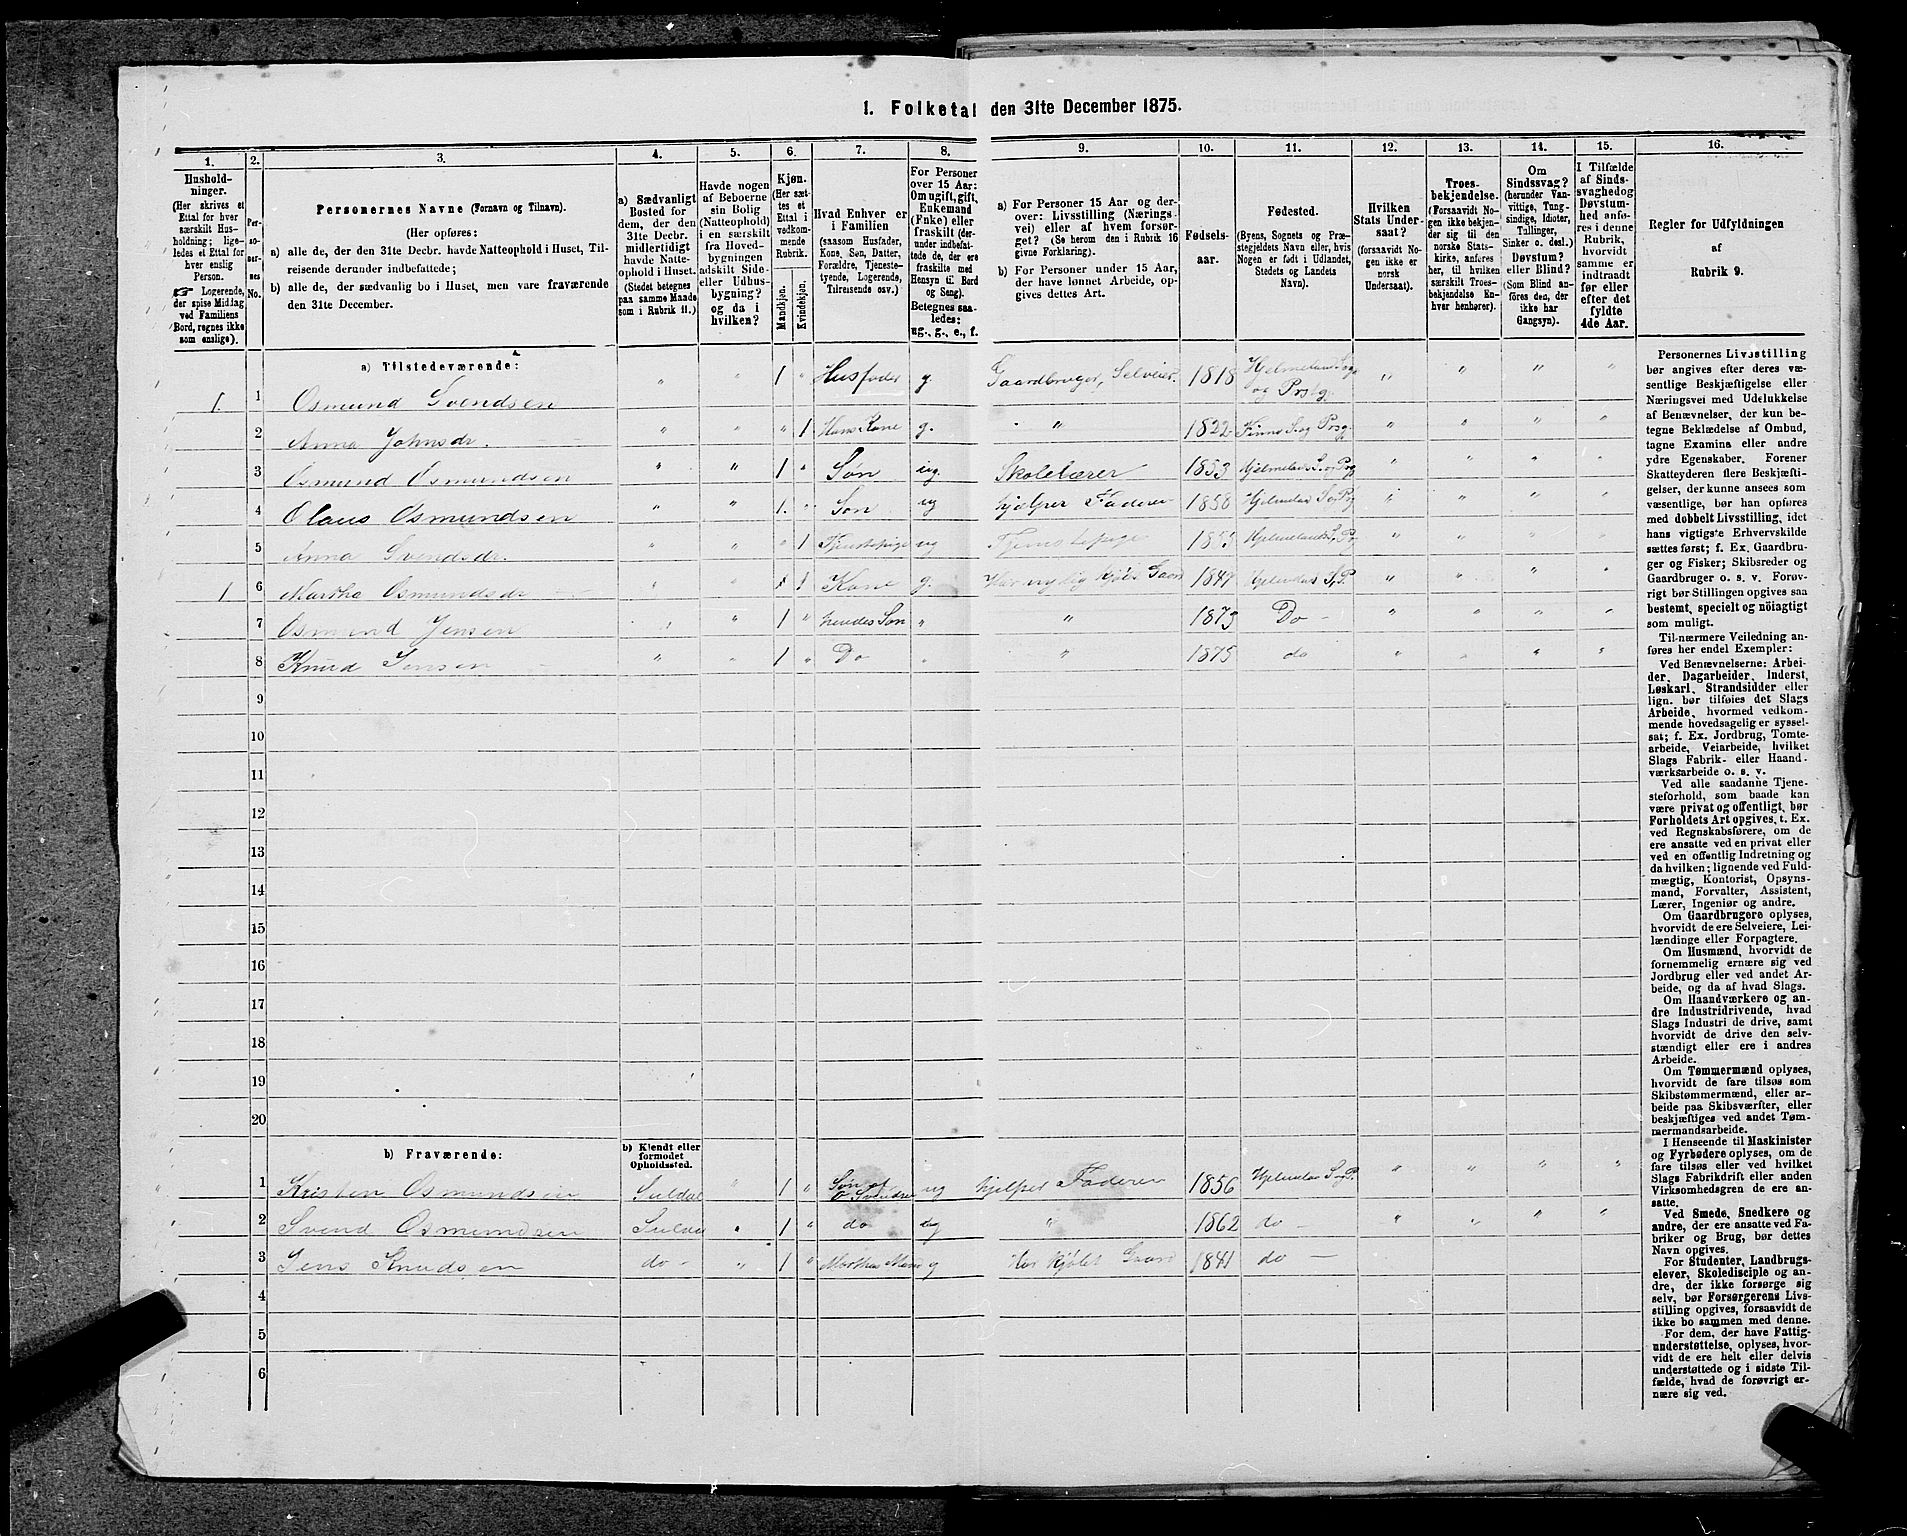 1. Folketal den 31te December 1875.
1. 2. 3. 4. 5. 6. 7. 8. 9. 10. 11. 12. 13. 14. 15. 16.
Hushold-
ninger.
(Her skrives et
Ettal for hver
særskilt Hus-
holdning; lige-
ledes et Ettal for
hver enslig
Person.
☞ Logerende,
der spise Middag
ved Familiens
Bord, regnes ikke
som enslige).
Per-
so-
ner-
nes
No.
Personernes Navne (Fornavn og Tilnavn).
(Her opføres:
a) alle de, der den 31te Decbr. havde Natteophold i Huset, Til-
reisende derunder indbefattede;
b) alle de, der sædvanlig bo i Huset, men vare fraværende
den 31te December.
a) Sædvanligt
Bosted for
dem, der den
31te Decbr.
midlertidigt
havde Natte-
ophold i Huset.
(Stedet betegnes
paa samme Maade
som i Rubrik 11.)
Havde nogen
af Beboerne
sin Bolig
(Natteophold)
i en særskilt
fra Hoved-
bygningen
adskilt Side-
eller Udhus-
bygning?
og da i
hvilken?
Kjøn.
(Her sæt-
tes et
Ettal i
vedkom-
mende
Rubrik.
Mandkjøn.
Kvindekjøn.
Hvad Enhver er
i Familien
(saasom Husfader,
Kone, Søn, Datter,
Forældre, Tjeneste-
tyende, Logerende,
Tilreisende osv.)
For Personer
over 15 Aar:
Om ugift, gift,
Enkemand
(Enke) eller
fraskilt (der-
under indbefat-
tede de, der ere
fraskilte med
Hensyn til Bord
og Seng).
Betegnes saa-
ledes:
ug., g., e., f.
a) For Personer 15 Aar og der-
over: Livsstilling (Nærings-
vei) eller af hvem forsør-
get? (Se herom den i Rubrik 16
givne Forklaring).
b) For Personer under 15 Aar,
der have lønnet Arbeide, op-
gives dettes Art.
Fødsels-
aar.
Fødested.
(Byens, Sognets og Præ-
stegjeldets Navn eller, hvis
Nogen er født i Udlandet,
Stedets og Landets
Navn).
Hvilken
Stats Under-
saat?
(forsaavidt No-
gen ikke er
norsk
Undersaat).
Troes-
bekjendelse.
(Forsaavidt No-
gen ikke bekjen-
der sig til den
norske Stats-
kirke, anføres
her, til hvilken
særskilt Troes-
bekjendelse En-
hver henhører).
Om
Sindssvag?
(herunder Van-
vittige, Tung-
sindige, Idioter,
Tullinger,
Sinker o. desl.)
Døvstum?
eller Blind?
(Som Blind an-
føres den, der
ikke har
Gangsyn).
I Tilfælde
af Sinds-
svaghed og
Døvstum-
hed anfø-
res i denne
Rubrik,
hvorvidt
samme er
indtraadt
før eller
efter det
fyldte
4de Aar.
Regler for Udfyldningen
af
Rubrik 9.
a) Tilstedeværende:
1. 1 Osmund Svendsen " " 1 " Husfader g. Gaardbruger, Selveier. 1818 Hjelmeland Sog og Prstg. " " " "
2 Anna Johnsdr. " " " 1 Hans Kone g. " 1822 " " " "
3 Osmund Osmundsen " " 1 " Søn ug. Skolelærer 1853 " " " "
4 Olaus Osmundsen " " 1. " Søn ug hjælper Faderen 1858 " " " "
5 Anna Svendsdr. " " " 1 Tjenstepige ug Tjenstepige " " " "
1 6 Martha Osmundsdr 1 Kone g. 1847 " " " "
7 Osmund Jensen " " 1 " hendes Søn " " 1873 Do - " " " "
8 Knud Jensen " " 1 " Do " " 1875 do " " " "
9
10
11
12
13
14
15
16
17
18
19
20
b) Fraværende:
b) Kjendt eller
formodet
Opholdssted.
1 Kristen Osmundsen Suldal " 1 " Søn af O Svendsen ug hjelper Faderen 1856 " " " "
2 Svend Osmundsen Suldal " 1 " do ug " 1862 do - " " " "
3 Jens Knudsen do - " 1 " Marthas Mand g Har kjøbt Gaard 1841 do -
4
5
6
Personernes Livsstilling
bør angives efter deres væ-
sentlige Beskjæftigelse eller
Næringsvei med Udelukkelse
af Benævnelser, der kun be-
tegne Beklædelse af Ombud,
tagne Examina eller andre
ydre Egenskaber. Forener
Skatteyderen flere Beskjæfti-
gelser, der kunne ansees som
væsentlige, bør han opføres
med dobbelt Livsstilling, idet
hans vigtigste Erhvervskilde
sættes først; f. Ex. Gaardbru-
ger og Fisker; Skibsreder og
Gaardbruger o. s. v. Forøv-
rigt bør Stillingen opgives saa
bestemt, specielt og nöiagtigt
som muligt.
Til nærmere Veiledning an-
føres her endel Exempler:
Ved Benævnelserne: Arbei-
der, Dagarbeider, Inderst,
Løskarl, Strandsidder eller
lign. bør tilføies det Slags
Arbeide, hvormed vedkom-
mende hovedsagelig er syssel-
sat; f. Ex. Jordbrug, Tomte-
arbeide, Veiarbeide, hvilket
Slags Fabrik- eller Haand-
værksarbeide o. s. v.
Ved alle saadanne Tjene-
steforhold, som baade kan
være privat og offentligt, bør
Forholdets Art opgives, t. Ex.
ved Regnskabsførere, om de
ere ansatte ved en privat eller
ved en offentlig Indretning og
da hvilken; lignende ved Fuld-
mægtig, Kontorist, Opsyns-
mand, Forvalter, Assistent,
Lærer, Ingeniør og andre.
Om Gaardbrugere oplyses,
hvorvidt de ere Selveiere, Lei-
lændinge eller Forpagtere.
Om Husmænd, hvorvidt de
fornemmelig ernære sig ved
Jordbrug eller ved andet Ar-
beide, og da af hvad Slags.
Om Haandværkere og an-
dre Industridrivende, hvad
Slags Industri de drive, samt
hvorvidt de drive den selv-
stændigt eller ere i andres
Arbeide.
Om Tømmermænd oplyses,
hvorvidt de fare tilsøs som
Skibstømmermænd, eller ar-
beide paa Skibsværfter, eller
beskjæftiges ved andet Tøm-
mermandsarbeide.
I Henseende til Maskinister
og Fyrbødere oplyses, om de
fare tilsøs eller ved hvilket
Fabrikdrift eller anden
Virksomhedsgren de ere an-
satte.
Ved Smede, Snedkere og
andre, der ere ansatte ved Fa-
briker og Brug, bør dettes
Navn opgives.
For Studenter, Landbrugs-
elever, Skoledisciple og an-
dre, der ikke forsørge sig
selv, bør Forsørgerens Livs-
stilling opgives, forsaavidt de
ikke bo sammen med denne.
For dem, der have Fattig-
understøttelse, oplyses, hvor-
vidt de ere helt eller delvis
understøttede og i sidste Til-
fælde, hvad de forøvrigt er-
nære sig ved.